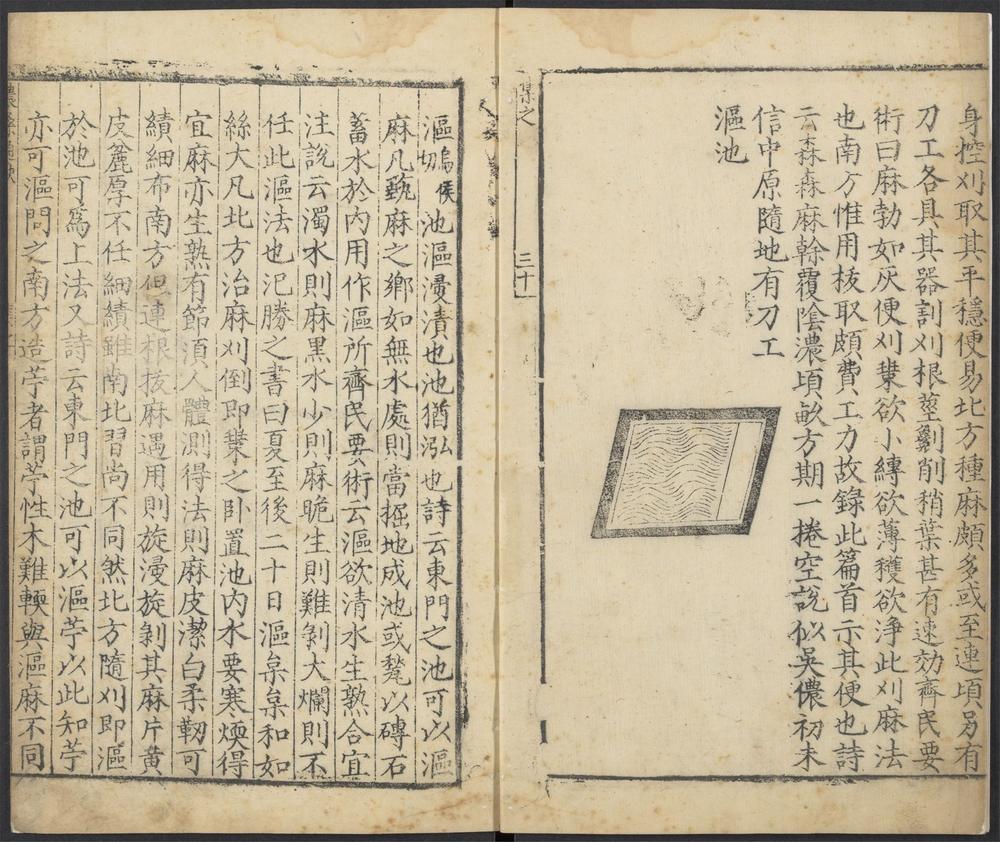 身控刈取其平穩便易北方種麻頗多或至連頃另有
刀工各具其器割刈根莖劙削梢葉甚有速効齊民要
術曰麻勃如灰便刈㯺欲小縳欲薄穫欲淨此刈麻法
也南方惟用拔取頗費工力故錄此篇首示其便也詩
云森森麻幹覆陰濃頃畝方期一捲空說似吳儂初未
信中原隨地有刀工
漚池
集之
三十一
漚 候 池漚漫漬也池猶泓也詩云東門之池可以漚
麻凡蓺麻之鄉如無水處則當掘地成池或甃以磚石
蓄水於內用作漚所齊民要術云漚欲清水生熟合宜
注說云濁水則麻黑水少則麻脆生則難剝大爛則不
任此漚法也氾勝之書曰夏至後二十日漚枲枲和如
絲大凡北方治麻刈倒即㯺之卧置池內水要寒煖得
宜麻亦生熟有節須人體測得法則麻皮潔白柔韌可
績細布南方但連根拔麻遇用則旋漫旋剝其麻片黃
皮麄厚不任細績雖南北習尚不同然北方隨刈即漚
於池可爲上法又詩云東門之池可以漚苧以此知苧
亦可漚問之南方造苧者謂苧性木難輭與漚麻不同